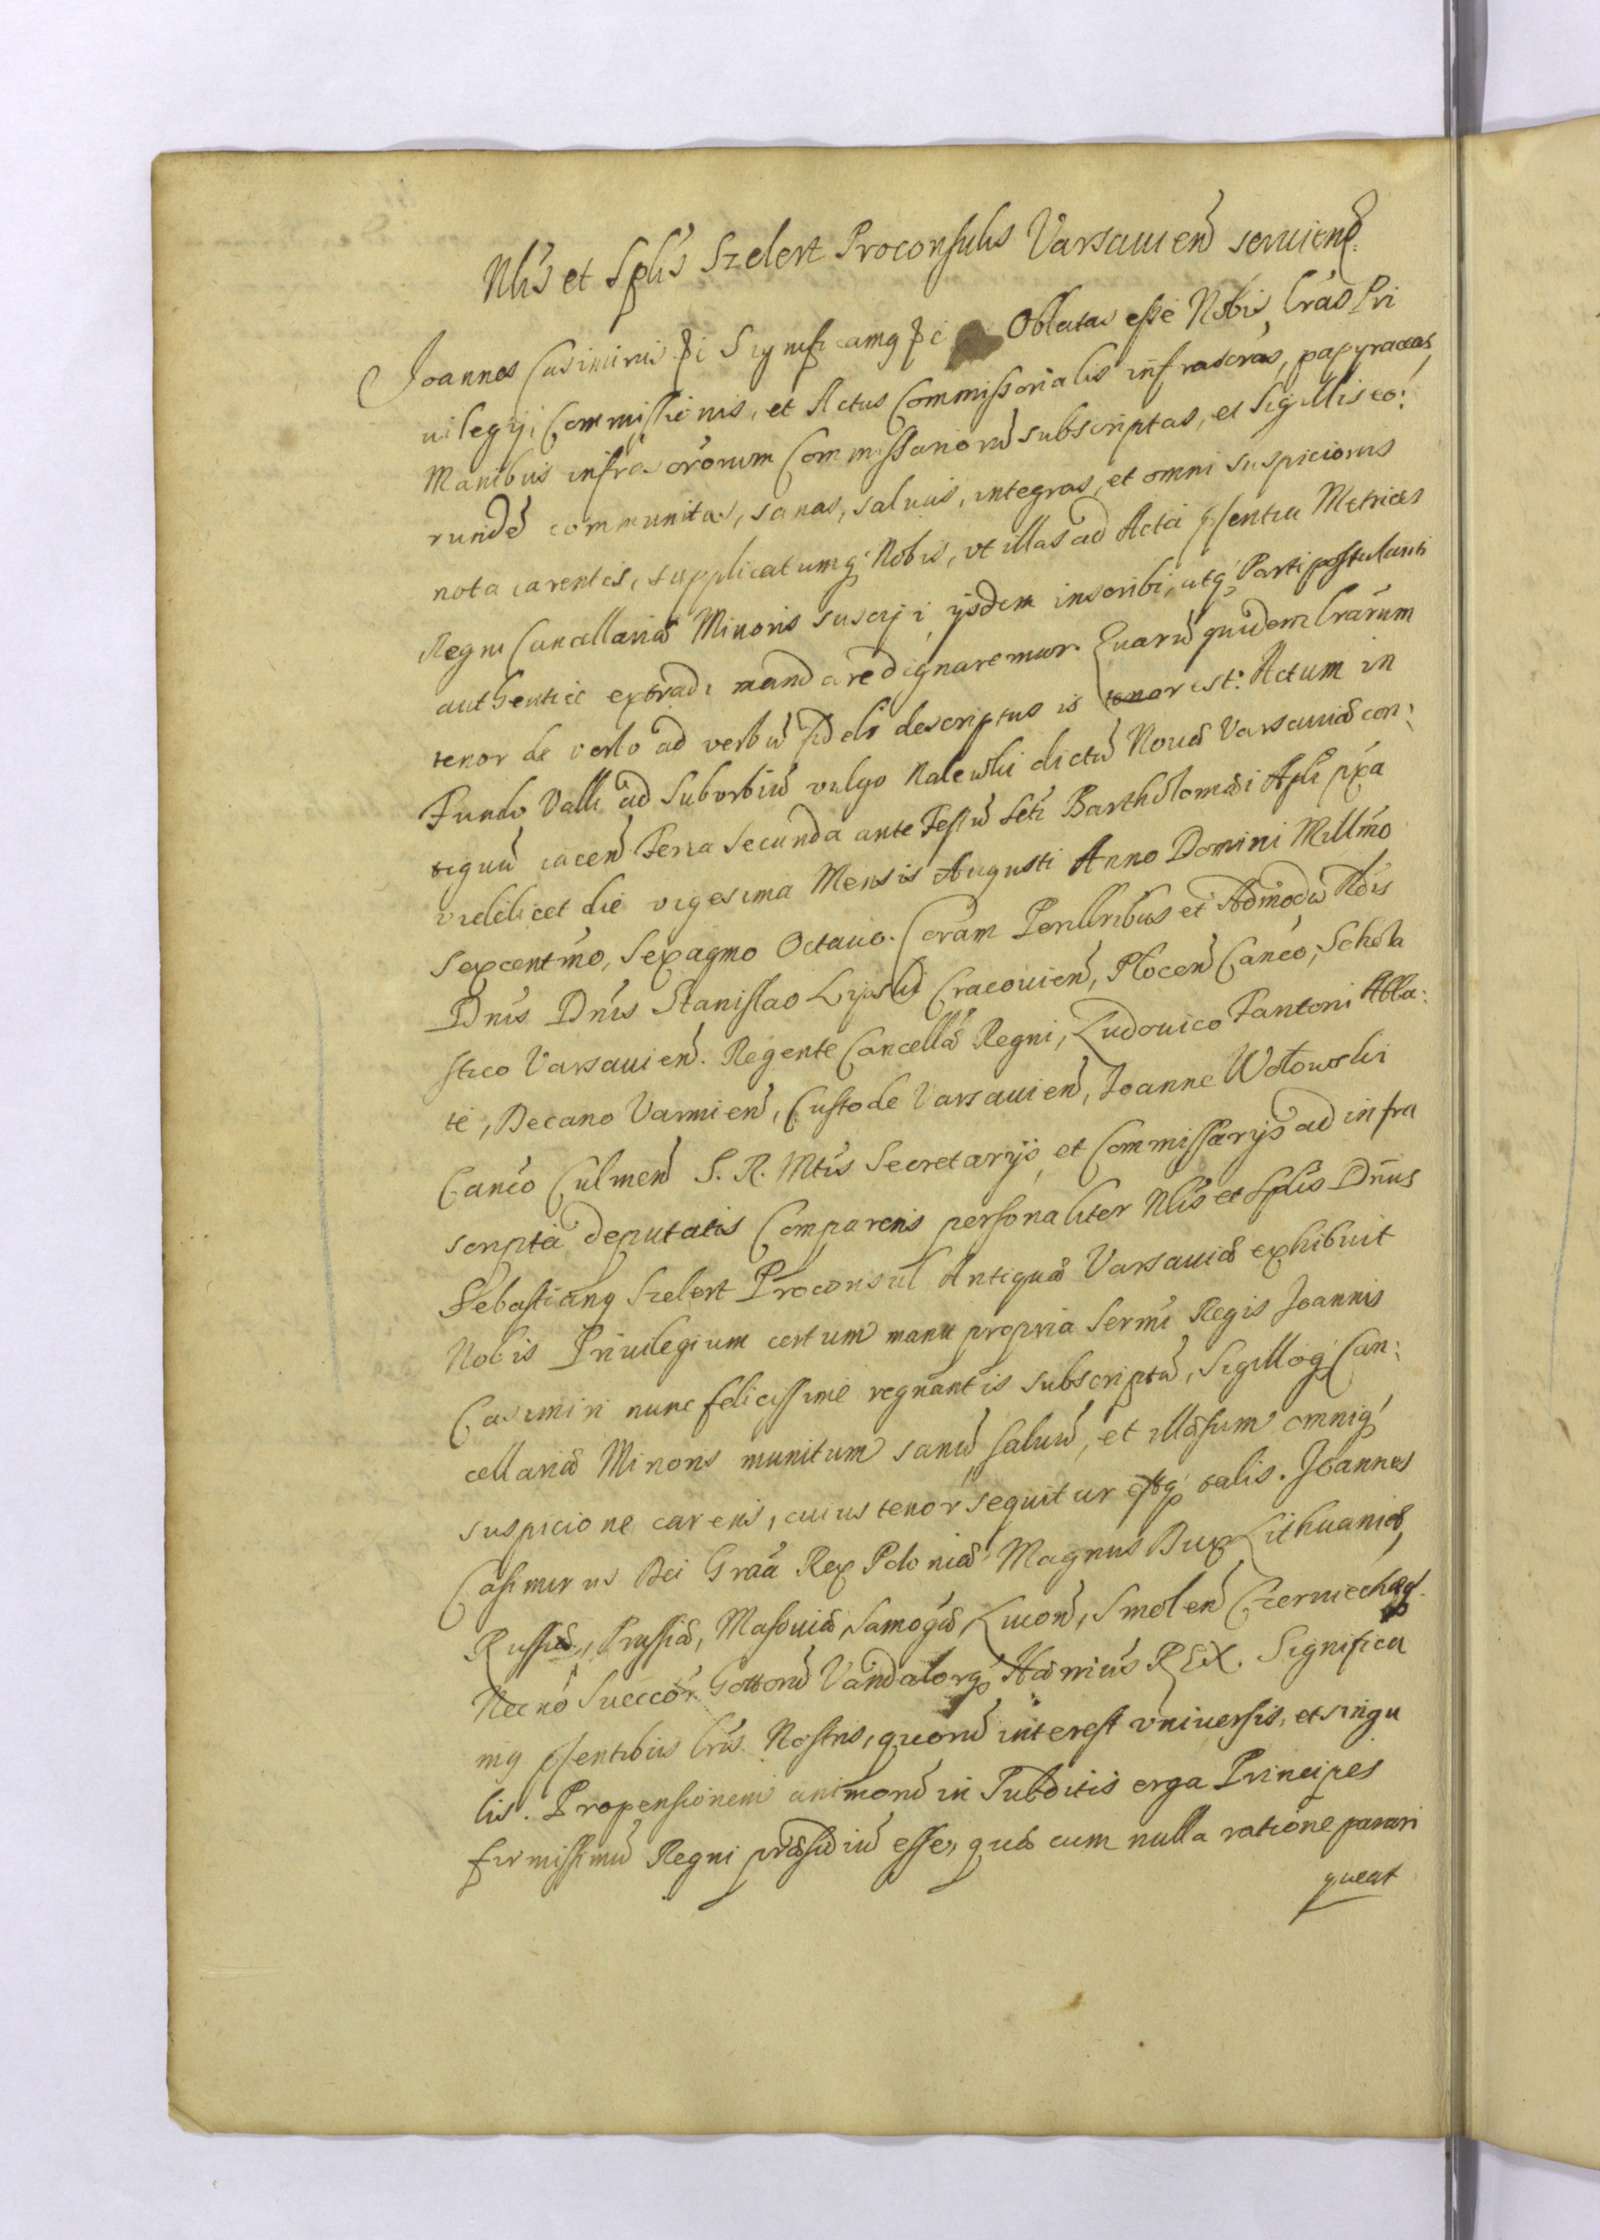 Nlis et Splis Szelert Proconsulis Varsauien̄ seruiens.
Joannes Casimirus etc Significamq etc Oblatas esse Nobis Lrás Pri
uilegij Commissionis, et Actus Commissorialis infrascrás, papyraceas,
Manibus infrascrórum Commissariorū subscriptas, et Sigillis eo:
rundē communitas, sanas, saluas, integras, et omni suspicionis
nota carentes, supplicatumq Nobis, vt illas ad Acta psentia Metrices
Regni Cancellariæ Minoris suscipi, ijsdem inscribi, atq Parti postulanti
authenticè extradi mandare dignaremur. Quarū quidem Lrárum
tenor de verbo ad verbū fideli descriptus is est: Actum in
Fundo Valli ad Suburbiū vulgo Nalewki dictū Nouæ Varsauiæ con:
tiguū iacen̄ Feria Secunda ante Festū Scti Bartholomæi Apli pxa
videlicet die vigesima Mensis Augusti Anno Domini Millmo
Sexcentmo, Sexagmo Octauo. Coram Perillribus et Admodū Rdis
Dnis Dnis Stanislao Lipski Cracouien̄, Plocen̄ Canco, Schola
stico Varsauien̄. Regente Cancellæ Regni, Ludouico Fantoni Abba:
te, Decano Varmien̄, Custode Varsauien̄, Joanne Wołowski
Canco Culmen̄ S. R. Mtis Secretarijs, et Commissarijs ad infra
scripta deputatis Comparens personaliter Nlis et Splis Dnus
Sebastianq Szelert Proconsul Antiquæ Varsauiæ exhibuit
Nobis Priuilegium certum manu propria Sermi Regis Joannis
Casimiri nunc felicissime regnantis subscriptū, Sigilloq Can:
cellariæ Minoris munitum sanū saluū, et illæsum omniq
suspicione carens, cuius tenor sequitur estq talis. Joannes
Casimirus Dei Grãa Rex Poloniæ Magnus Dux Lithuaniæ,
Russiæ, Prussiæ, Masouiæ, Samogæ, Liuon̄, Smolen̄ Czerniechq
Necnō Suecor Gottorū Vandalorq Hæreius REX. Significa
mq psentibus Lris Nostris, quorū interest vniuersis, et singu
lis. Propensionem animorū in Subditis erga Principes
firmissimū Regni præsidiū esse, quæ cum nulla ratione parari
queat